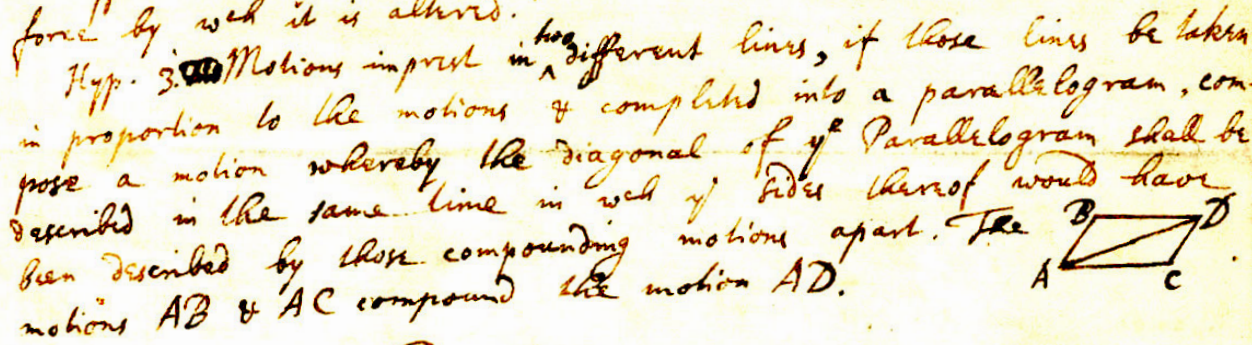 force by wch it is altered.
Hyp. 3. Motions imprest in two different lines, if those lines be taken
in proportion to the motions & completed into a parallelogram, com-
pose a motion whereby the diagonal of ye Parallelogram shall be
described in the same time in wch ye sides thereof would have
been described by those compounding motions apart. The B D
motions AB & AC compound the motion AD. A C